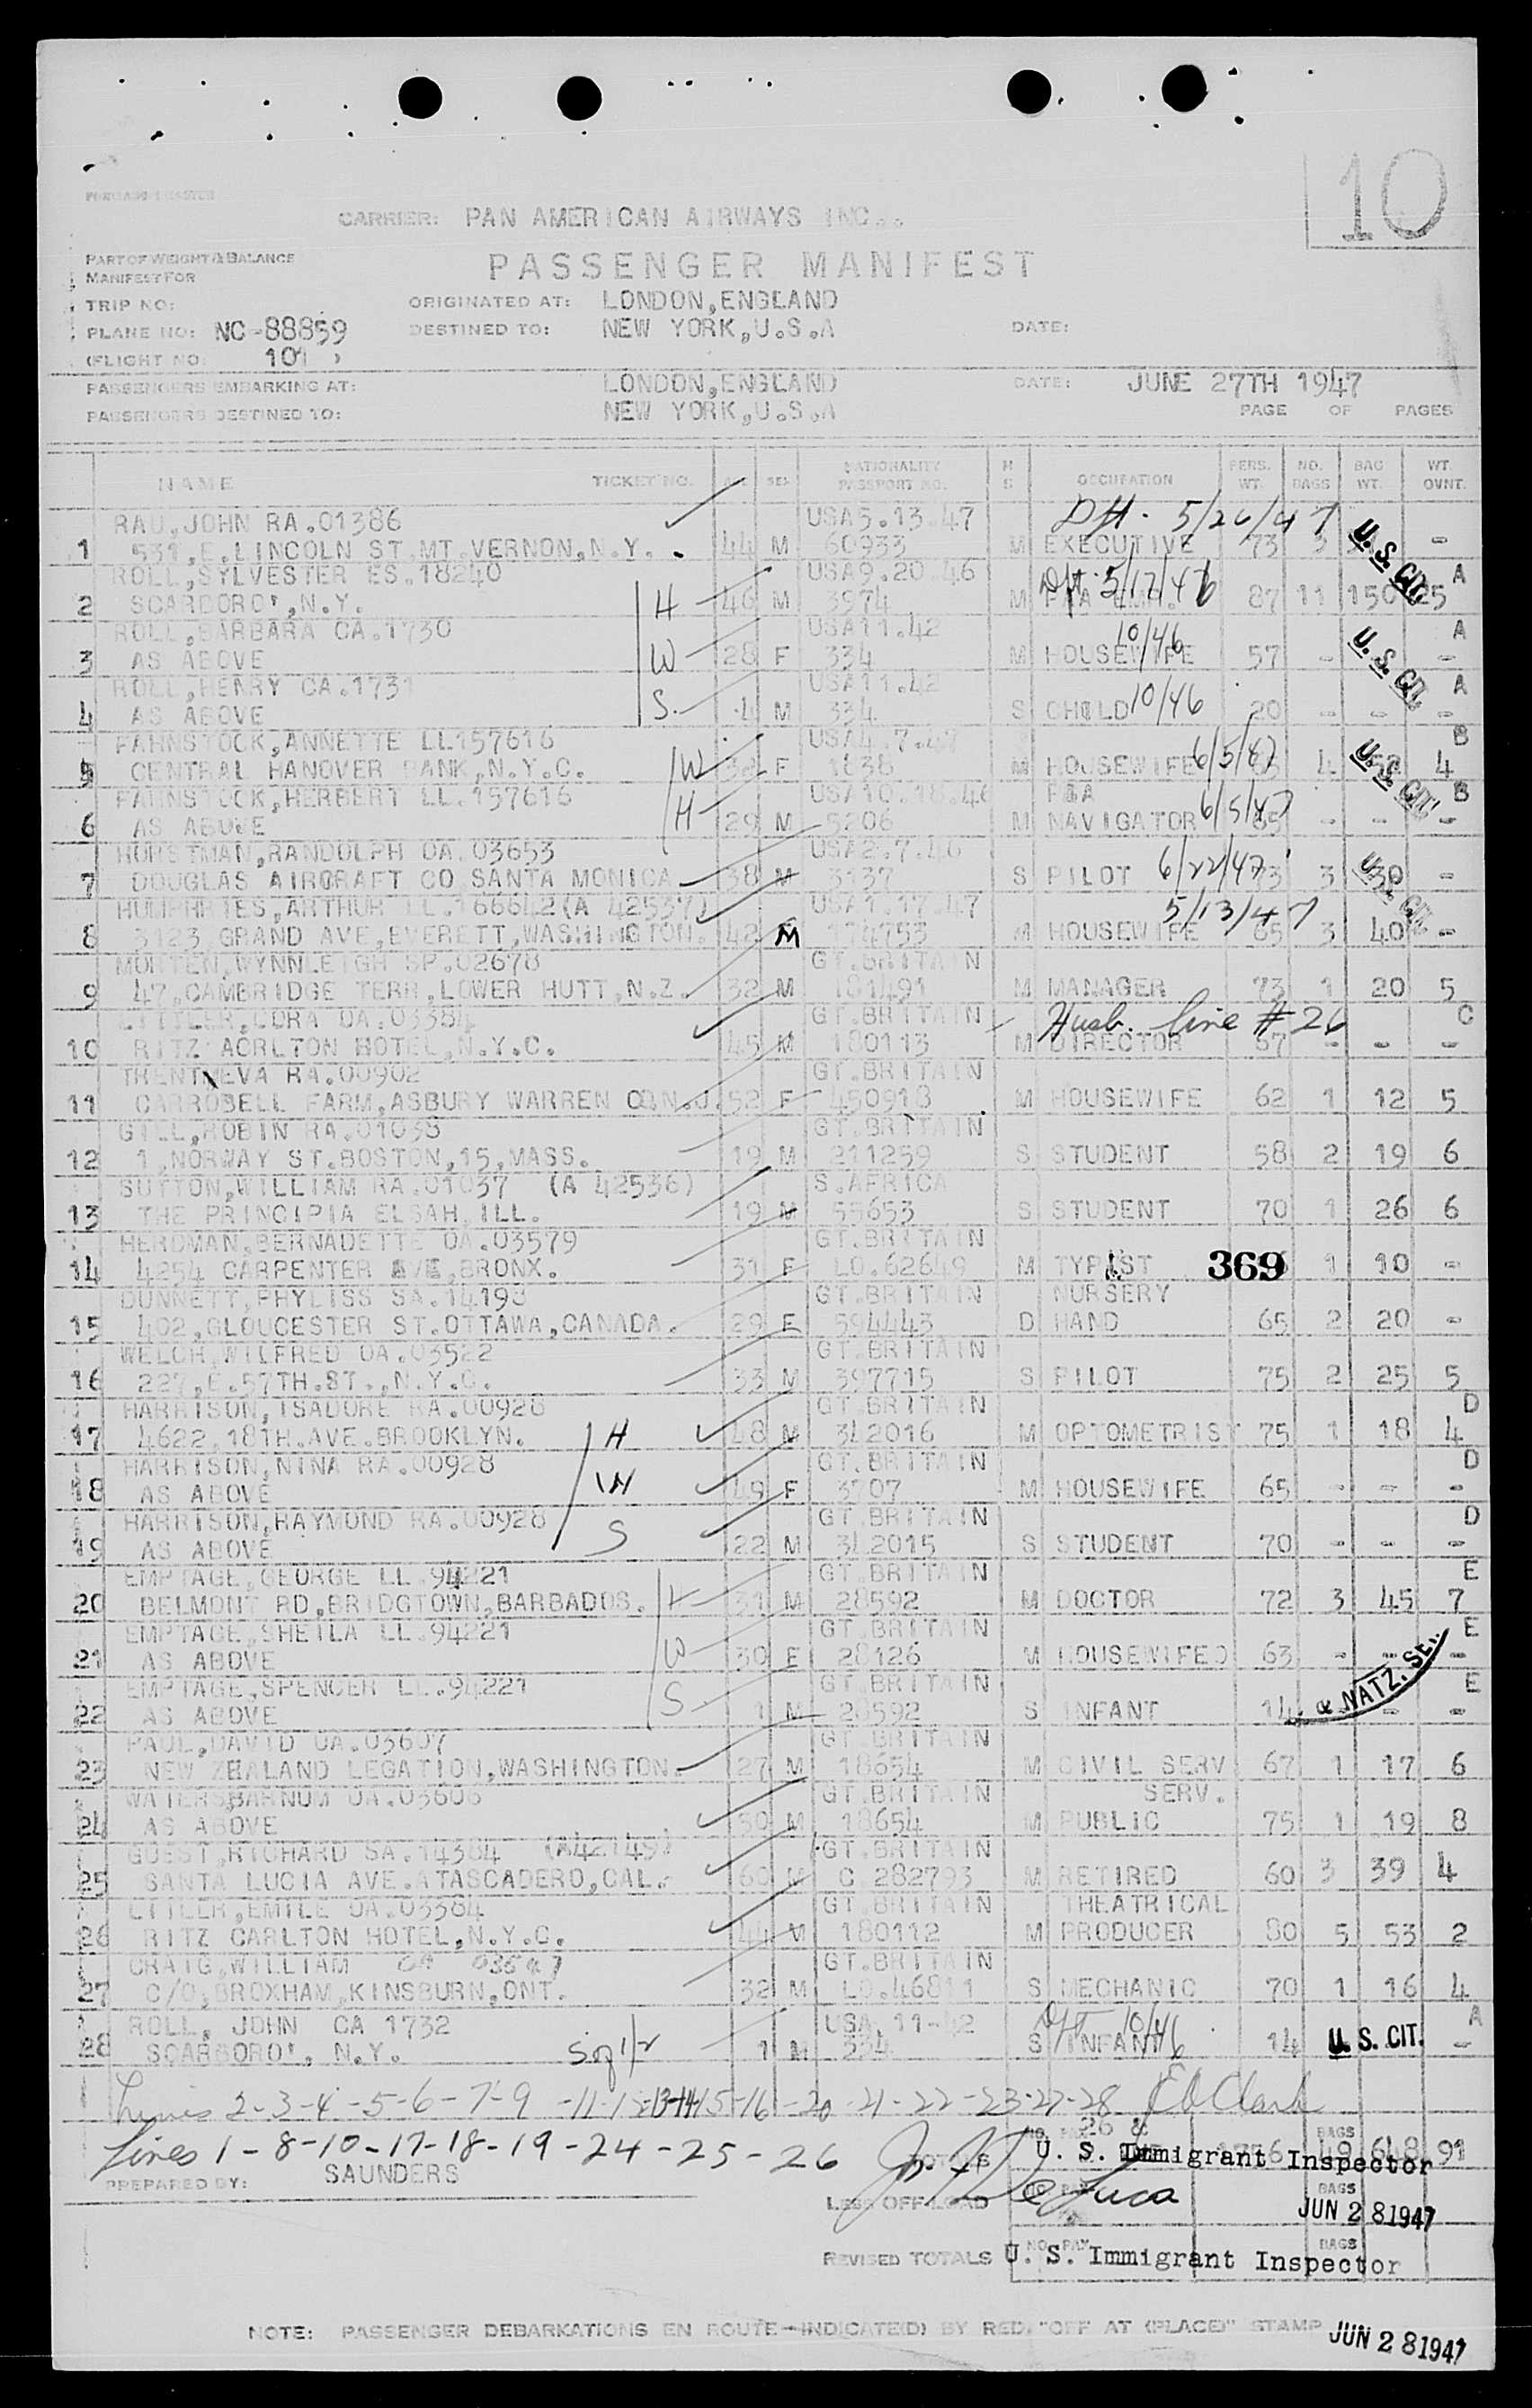 10
CARRIER: PAN AMERICAN AIRWAYS INC..
PART OF WEIGHT & BALANCE
MANIFEST FOR
PASSENGER MANIFEST
TRIP NO:
ORIGINATED AT: LONDON,ENGLAND
PLANE NO: NC-88859
DESTINED TO: NEW YORK,U.S.A
DATE:
(FLIGHT NO. 101 )
PASSENGERS EMBARKING AT: LONDON,ENGLAND
DATE: JUNE 27TH 1947
PASSENGERS DESTINED TO: NEW YORK,U.S.A
PAGE OF PAGES
NAME TICKET NO. AGE SEX NATIONALITY PASSPORT NO. M S OCCUPATION PERS. WT. NO. BAGS BAG WT. WT. OVNT.
RAU,JOHN RA.01386 USA5.13.47 5/26/47
1 531,E.LINCOLN ST.MT.VERNON,N.Y. 44 M 60933 M EXECUTIVE 73 3 U.S. CIT. -
ROLL,SYLVESTER ES.18240 USA9.20.46 5/17/47 A
2 SCARBORO',N.Y. H 46 M 3974 M 87 11 150 25
ROLL,BARBARA CA.1730 USA11.42 10/46 A
3 AS ABOVE W 28 F 334 M HOUSEWIFE 57 - U.S. CIT. -
ROLL,HENRY CA.1731 USA11.42 A
4 AS ABOVE S. 4 M 334 S CHILD 10/46 20 - - -
FAHNSTOCK,ANNETTE LL157616 USA4.7.47 B
5 CENTRAL HANOVER BANK,N.Y.C. W F 1838 M HOUSEWIFE 6/5/47 4 U.S. CIT. 4
FAHNSTOCK,HERBERT LL.157616 USA10.18.46 B
6 AS ABOVE H 29 M 5206 M NAVIGATOR 6/5/47 65 - - -
HORSTMAN,RANDOLPH OA.03653 USA2.7.46
7 DOUGLAS AIRCRAFT CO SANTA MONICA 38 M 3137 S PILOT 6/22/47 73 3 30 U.S. CIT. -
HUMPHRIES,ARTHUR LL.166642(A 42537) USA1.17.47 5/13/47
8 3123 GRAND AVE,EVERETT,WASHINGTON. 42 M 174753 M HOUSEWIFE 65 3 40 -
MORTEN,WYNNLEIGH SP.02678 GT.BRITAIN
9 47,CAMBRIDGE TERR,LOWER HUTT,N.Z. 32 M 181491 M MANAGER 73 1 20 5
LITTLER,CORA OA.03384 GT.BRITAIN Husb. line #26 C
10 RITZ ACRLTON HOTEL,N.Y.C. 45 M 180113 M DIRECTOR 67 - - -
TRENT,EVA RA.00902 GT.BRITAIN
11 CARROBELL FARM,ASBURY WARREN CO.N.J. 52 F 450918 M HOUSEWIFE 62 1 12 5
GILL,ROBIN RA.01038 GT.BRITAIN
12 1,NORWAY ST.BOSTON,15,MASS. 19 M 211259 S STUDENT 58 2 19 6
SUTTON,WILLIAM RA.01037 (A 42536) S.AFRICA
13 THE PRINCIPIA ELSAH,ILL. 19 M 55653 S STUDENT 70 1 26 6
HERDMAN,BERNADETTE OA.03579 GT.BRITAIN
14 4254 CARPENTER AVE,BRONX. 31 F LO.62649 M TYPIST 369 1 10 -
DUNNETT,PHYLISS SA.14193 GT.BRITAIN NURSERY
15 402,GLOUCESTER ST.OTTAWA,CANADA. 29 F 594443 D HAND 65 2 20 -
WELCH,WILFRED OA.03522 GT.BRITAIN
16 227,E.57TH.ST.,N.Y.C. 33 M 397715 S PILOT 75 2 25 5
HARRISON,ISADORE RA.00928 GT.BRITAIN D
17 4622,18TH.AVE.BROOKLYN. H 48 M 3L2016 M OPTOMETRIST 75 1 18 4
HARRISON,NINA RA.00928 GT.BRITAIN D
18 AS ABOVE W 49 F 3907 M HOUSEWIFE 65 - - -
HARRISON,RAYMOND RA.00928 GT.BRITAIN D
19 AS ABOVE S 22 M 3L2015 S STUDENT 70 - - -
EMPTAGE,GEORGE LL.94221 GT.BRITAIN E
20 BELMONT RD,BRIDGTOWN,BARBADOS. H 31 M 28592 M DOCTOR 72 3 45 7
EMPTAGE,SHEILA LL.94221 GT.BRITAIN E
21 AS ABOVE W 30 F 28126 M HOUSEWIFE 63 - - -
EMPTAGE,SPENCER LL.94221 GT.BRITAIN E
22 AS ABOVE S 1 M 28592 S INFANT 14 & NATZ. - -
PAUL,DAVID OA.03607 GT.BRITAIN
23 NEW ZEALAND LEGATION,WASHINGTON. 27 M 18654 M CIVIL SERV 67 1 17 6
WATERS,BARNUM OA.03606 GT.BRITAIN SERV.
24 AS ABOVE 50 M 18654 M PUBLIC 75 1 19 8
GUEST,RICHARD SA.14384 (A42149) GT.BRITAIN
25 SANTA LUCIA AVE.ATASCADERO,CAL. 60 M C 282793 M RETIRED 60 3 39 4
LITTLER,EMILE OA.03384 GT.BRITAIN THEATRICAL
26 RITZ CARLTON HOTEL,N.Y.C. 44 M 180112 M PRODUCER 80 5 53 2
CRAIG,WILLIAM GT.BRITAIN
27 C/O,BROXHAM,KINSBURN,ONT. 32 M LO.46811 S MECHANIC 70 1 16 4
ROLL, JOHN CA 1732 USA, 11-42 10/46 A
28 SCARBORO', N.Y. 1 M 334 S INFANT 14 U.S. CIT. -
Lines 2-3-4-5-6-7-9-11-12-13-14-15-16-20-21-22-23-27-28
Lines 1-8-10-17-18-19-24-25-26
26 &
TOTALS U. S. Immigrant Inspector BAGS 49 648 91
PREPARED BY: SAUNDERS
LESS OFF-LOAD BAGS
JUN 28 1947
REVISED TOTALS U. S. Immigrant Inspector BAGS
NOTE: PASSENGER DEBARKATIONS EN ROUTE—INDICATE(D) BY RED. "OFF AT (PLACE)" STAMP
JUN 28 1947